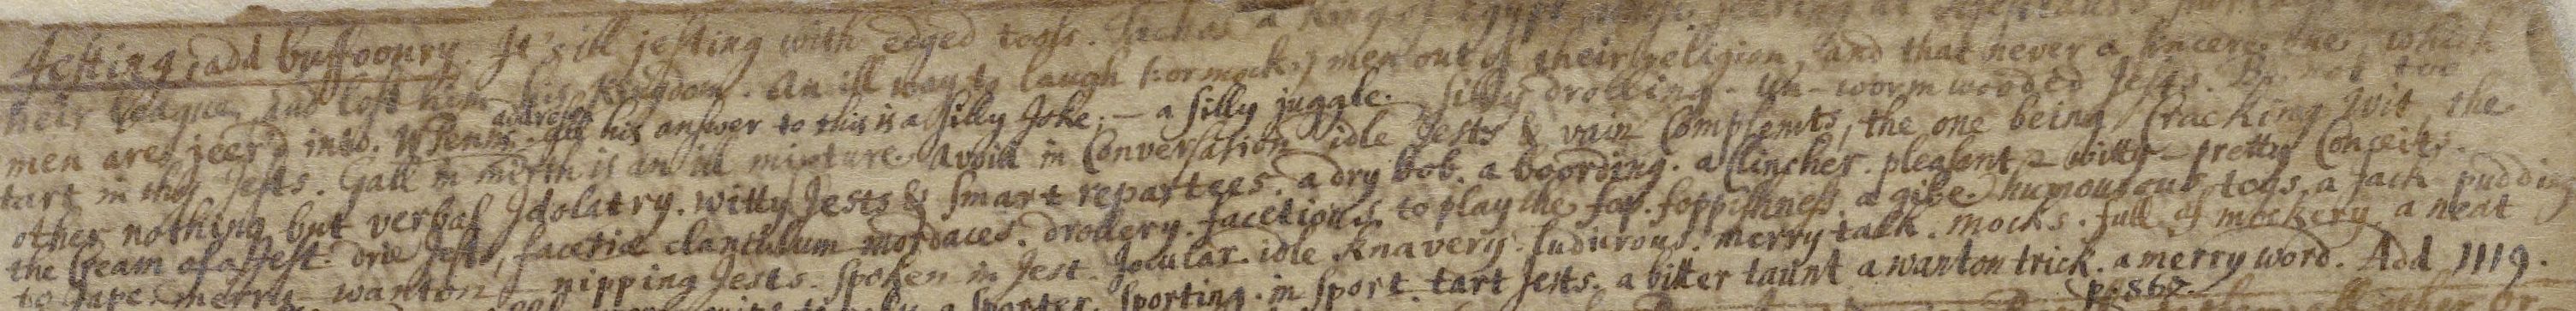 Jesting, add buffoonry. It's ill jesting with edged tools. a King of Egypt
their league, had lost him his Kingdom. An ill way to laugh (or mock) men out of their religion, and that never a sincere one, which
men are jeer'd into. address his answer to this is a silly Joke; — a silly juggle. silly drolling. Un-wormwooded Jests. Be not too
tart in thy Jests. Gall in mirth is an ill mixture. Avoid in Conversation idle Jests & vain Complemts, the one being Cracking Wit, the
other nothing but verbal Idolatry. witty Jests & smart repartees. a dry bob. a boording. a Clincher. pleasant – witty – pretty Conceits.
the Cream of a Jest. drie Jests, facetiæ clanculum mordaces. drollery. facetious. to play the fop. foppishness. a gibe. humourous toys, a Jack pudding
to Jape. merry wanton – nipping Jests. spoken in Jest. Jocular. idle Knavery. ludicrous. merry talk. mocks. full of mockery a neat
a sporter. sporting. in sport. tart Jests. a bitter taunt a wanton trick. a merry word. Add 1119.
p. 867.